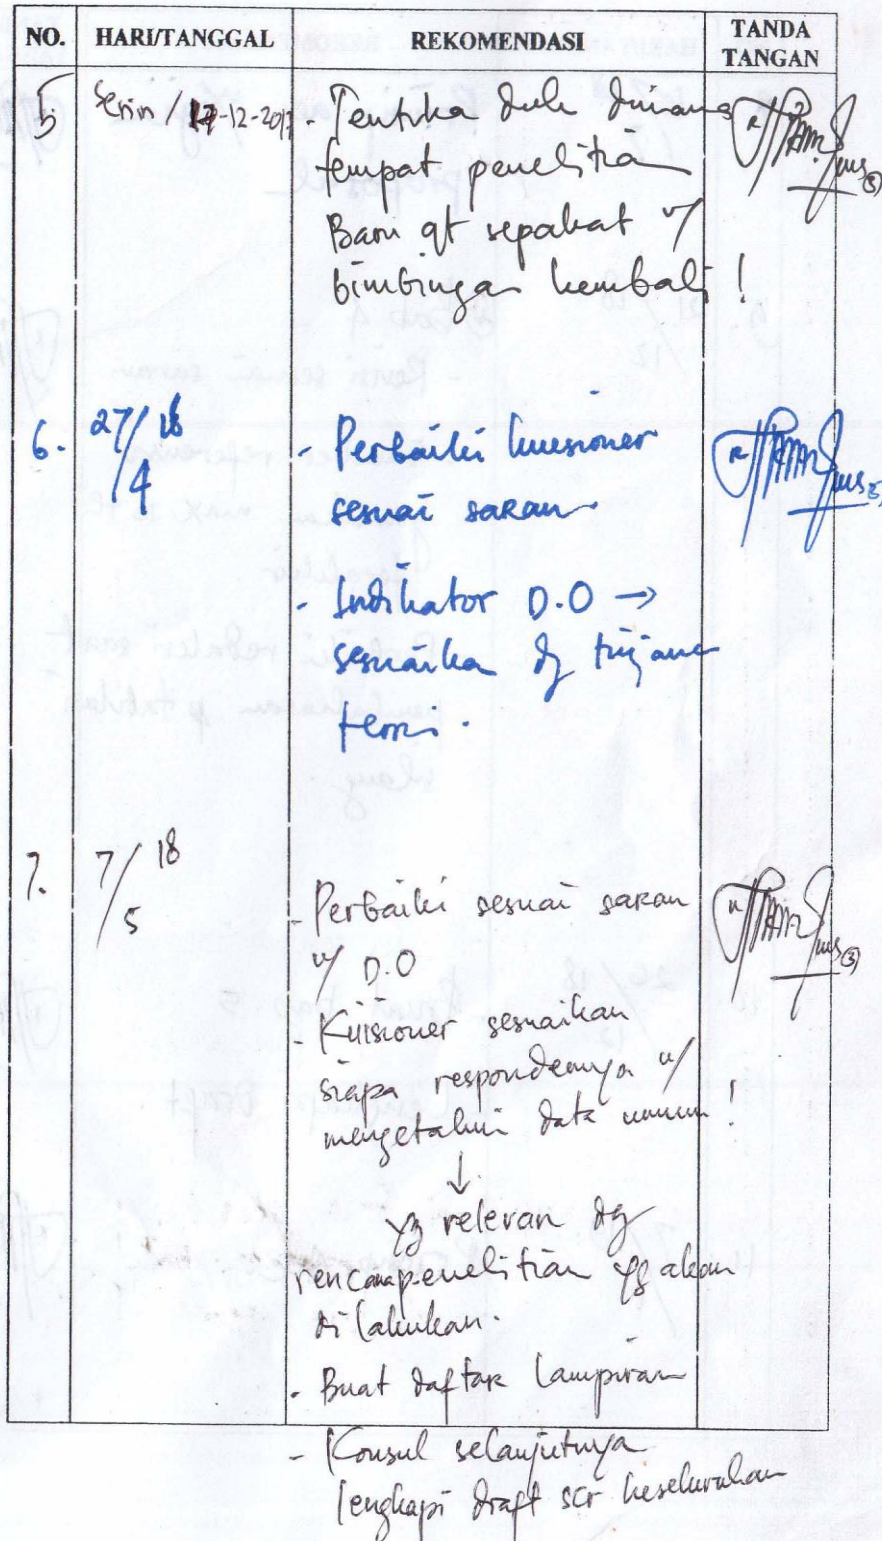 NO. HARI/TANGGAL REKOMENDASI TANDA TANGAN
5 Senin / 17-12-2017 - Tentuka dulu dimana
tempat penelitia
Baru qt sepakat u/
bimbingan kembali !
6. 27/4 18 - Perbaiki kuesioner
sesuai saran.
- Indikator D.O →
sesuaika dg tinjaua
teori.
7. 7/5 18
- Perbaiki sesuai saran
u/ D.O
- Kuisioner sesuaikan
siapa respondennya u/
mengetahui data umum !
↓
yg relevan dg
rencana penelitian yg akan
di lakukan.
- Buat daftar lampiran
- Konsul selanjutnya
lengkapi draft scr keseluruhan